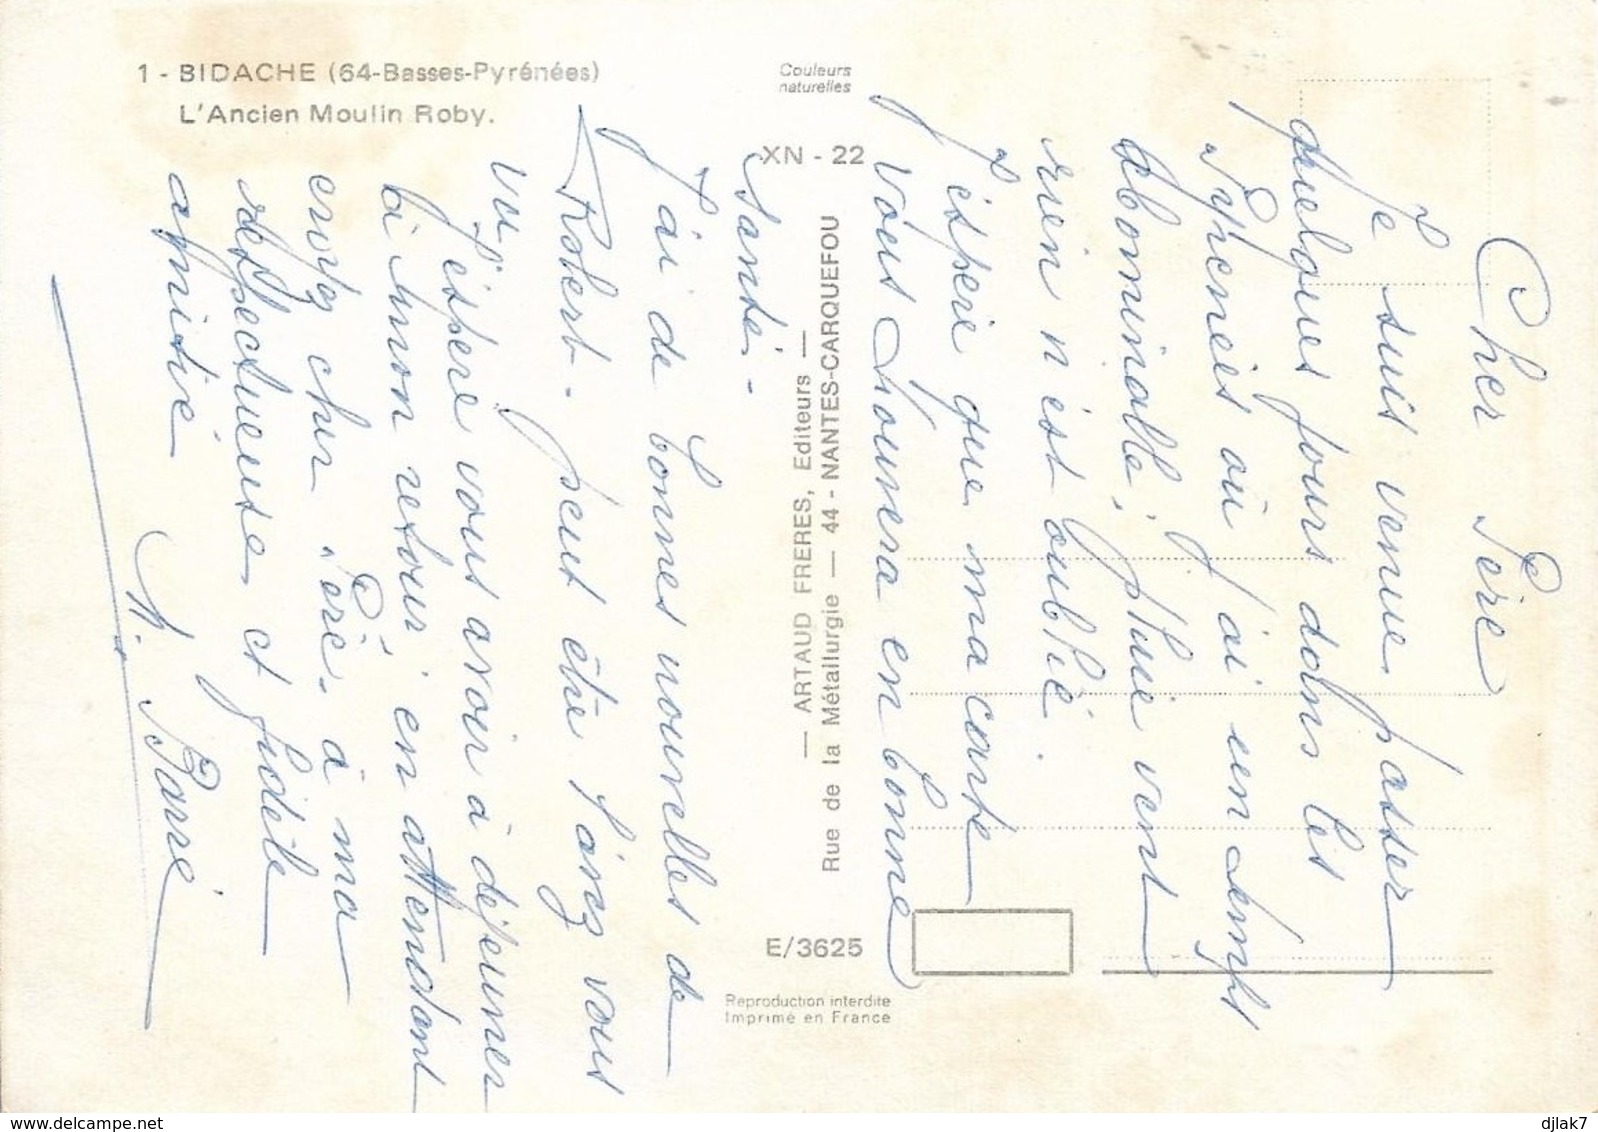 1 - BIDACHE (64-Basses-Pyrénées)
L'Ancien Moulin Roby.
Couleurs
naturelles
XN - 22
— ARTAUD FRERES, Editeurs —
Rue de la Métallurgie — 44 - NANTES-CARQUEFOU
E/3625
Reproduction interdite
Imprimé en France
Cher Père
Je suis venue passer
quelques jours dans les
Pyrenées où j'ai un temps
abominable, pluie vent
rien n'est oublié.
J'espère que ma carte
vous trouvera en bonne
santé -
J'ai de bonnes nouvelles de
Robert - peut être l'avez vous
vu J'espère vous avoir à déjeuner
à mon retour, en attendant
croyez cher Père, à ma
respectueuse et fidèle
amitié
Barré
djlak7